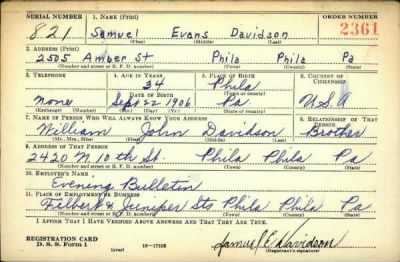 SERIAL NUMBER 1. NAME (Print) ORDER NUMBER
821 Samuel Evans Davidson 2361
(First) (Middle) (Last)
2. ADDRESS (Print)
2505 Amber St Phila Phila Pa
(Number and street or R. F. D. number) (Town) (County) (State)
3. TELEPHONE 4. AGE IN YEARS 5. PLACE OF BIRTH 6. COUNTRY OF CITIZENSHIP
34 Phila
DATE OF BIRTH (Town or county)
None Sept 22 1906 Pa. U.S.A
(Exchange) (Number) (Mo.) (Day) (Yr.) (State or country)
7. NAME OF PERSON WHO WILL ALWAYS KNOW YOUR ADDRESS 8. RELATIONSHIP OF THAT PERSON
William John Davidson Brother
(Mr., Mrs., Miss) (First) (Middle) (Last)
9. ADDRESS OF THAT PERSON
2420 N 10th St. Phila Phila Pa
(Number and street or R. F. D. number) (Town) (County) (State)
10. EMPLOYER'S NAME
Evening Bulletin
11. PLACE OF EMPLOYMENT OR BUSINESS
Filbert & Juniper Sts Phila Phila Pa
(Number and street or R. F. D. number) (Town) (County) (State)
I AFFIRM THAT I HAVE VERIFIED ABOVE ANSWERS AND THAT THEY ARE TRUE.
REGISTRATION CARD
D. S. S. Form 1 (over) 16—17105 Samuel E Davidson
(Registrant's signature)